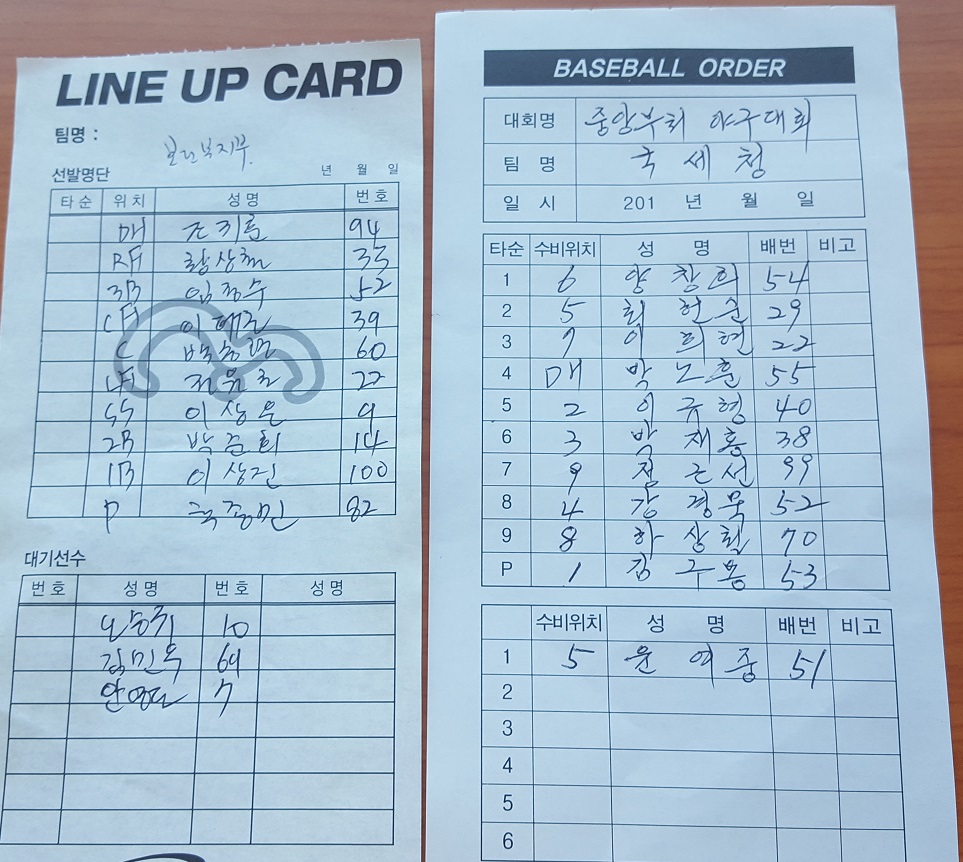 LINE UP CARD
팀명 : 보건복지부
선발명단 년 월 일
타순 위치 성명 번호
DH 조기름 94
RF 황상철 33
3B 임정수 52
CF 39
C 60
LF 22
SS 이상운 9
2B 박준희 14
1B 이상진 100
P 국종민 82
대기선수
번호 성명 번호 성명
오승취 10
김민욱 69
7
BASEBALL ORDER
대회명 중앙부처 야구대회
팀 명 국세청
일 시 201 년 월 일
타순 수비위치 성 명 배번 비고
1 6 양창희 54
2 5 최헌순 29
3 7 이희현 22
4 DH 박노훈 55
5 2 이규형 40
6 3 박재홍 38
7 9 정근선 99
8 4 강경묵 52
9 8 하상철 70
P 1 김구용 53
수비위치 성 명 배번 비고
1 5 윤여중 51
2
3
4
5
6